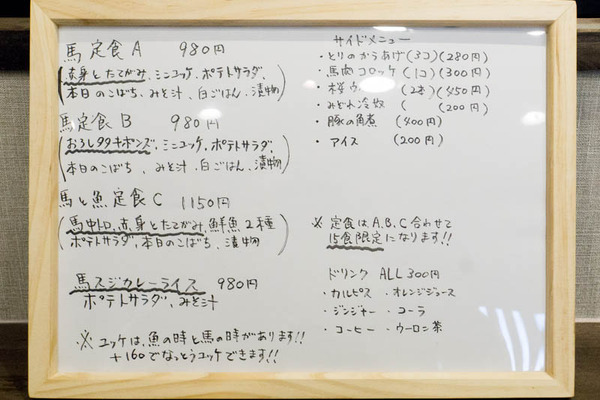 馬定食A 980円
(赤身とたてがみ、ミニユッケ、ポテトサラダ、
本日のこばち、みそ汁、白ごはん、漬物)
馬定食B 980円
(おろしタタキポンズ、ミニユッケ、ポテトサラダ、
本日のこばち、みそ汁、白ごはん、漬物)
馬と魚定食C 1150円
(馬中トロ、赤身とたてがみ、鮮魚2種
ポテトサラダ、本日のこばち、漬物)
馬スジカレーライス 980円
ポテトサラダ、みそ汁
※ユッケは、魚の時と馬の時があります!!
+160でなっとうユッケできます!!
サイドメニュー
・とりのからあげ(3コ)(280円)
・馬肉コロッケ(1コ)(300円)
・桜ウ (2本)(450円)
・みぞれ冷奴 (200円)
・豚の角煮(400円)
・アイス (200円)
※定食は、A、B、C合わせて
15食限定になります!!
ドリンク ALL300円
・カルピス ・オレンジジュース
・ジンジャー ・コーラ
・コーヒー ・ウーロン茶